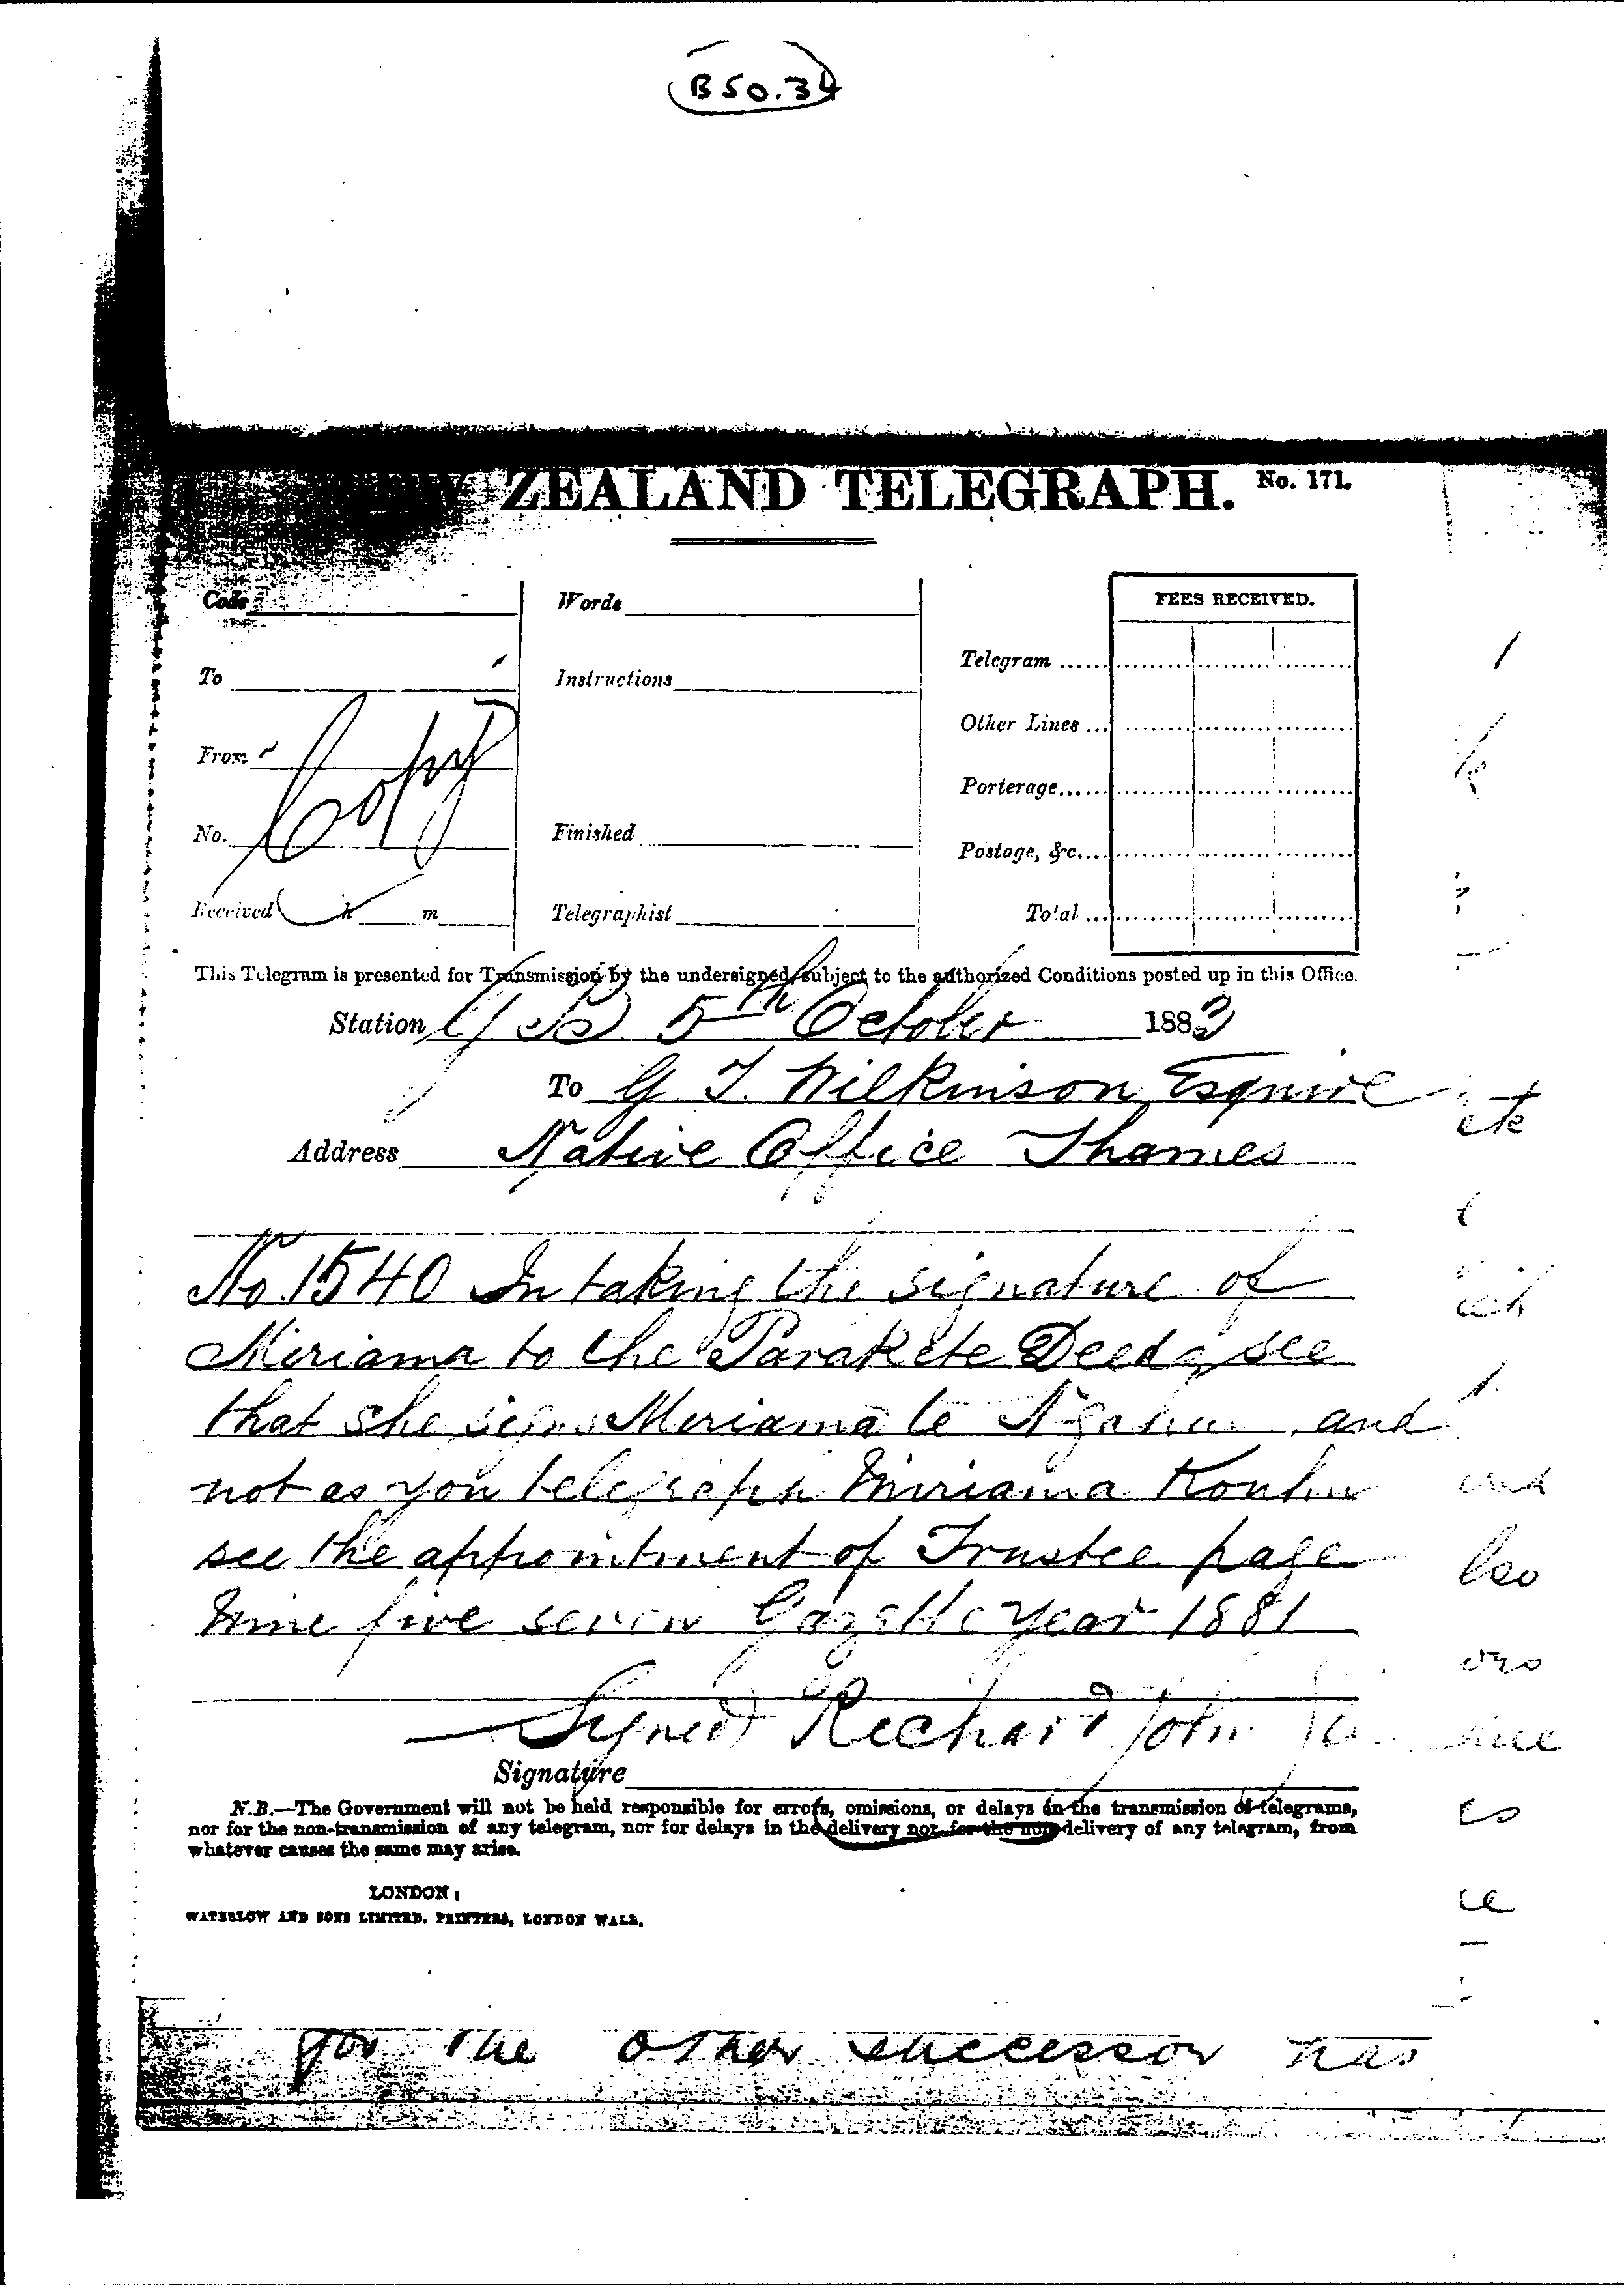 B50.34
ZEALAND TELEGRAPH. No. 171.
Code
Words
FEES RECEIVED.
To
Instructions
Telegram
From
Other Lines
Copy
Porterage
No.
Finished
Postage, &c.
Received h m
Telegraphist
Total
This Telegram is presented for Transmission by the undersigned, subject to the authorized Conditions posted up in this Office.
Station 5th October 1883
To G T. Wilkinson Esquire
Address Native Office Thames
No. 1540 In taking the signature of
Miriama to the Parakete Deed, see
that she signs Miriama te and
not as you telegraph Miriama
see the appointment of Trustee page
Nine five seven Gazette year 1881
Signed Richard John
Signature
N.B.—The Government will not be held responsible for errors, omissions, or delays in the transmission of telegrams,
nor for the non-transmission of any telegram, nor for delays in the delivery nor for the non-delivery of any telegram, from
whatever causes the same may arise.
LONDON:
WATERLOW AND SONS LIMITED. PRINTERS, LONDON WALL.
for the other successor has